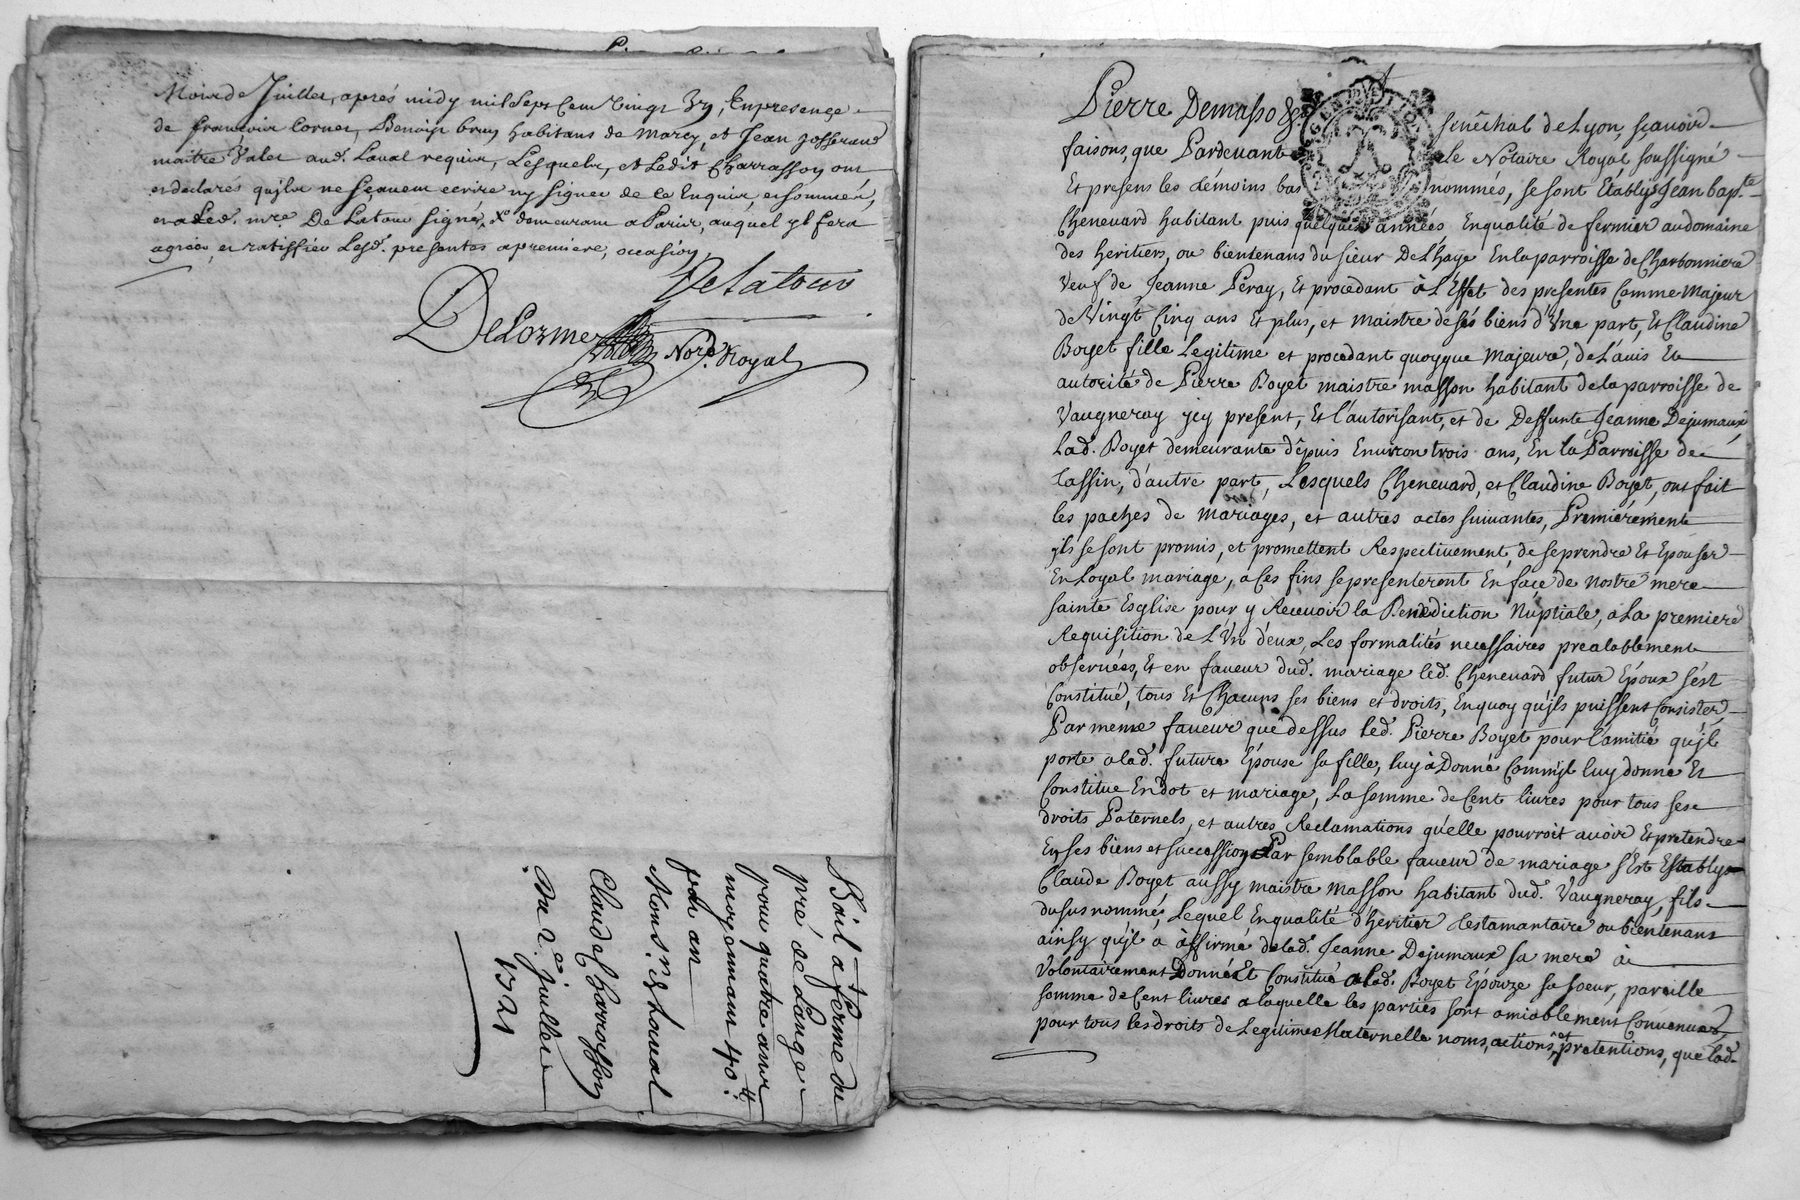 Mois de Juillet, aprés midy mil Sept Cent Vingt
de francois Cornet, Benoist brun habitans de Marcy, et Jean Josserand
maitre Valet aud. Laval requis, Lesquels, et Ledit Charrasson ont
et declarés qu'ils ne sçavent ecrire ny signer de ce Enquis, et sommés,
Led. mre De Latour signé, demeurant a Paris, auquel yl fera
agréer, et ratiffier Lesd. presentes a premiere, occasion
Delatour
DeLorme Nore. Royal
Bail a ferme du
pré de Lange
pour quatre ans
moyennant 40tt:
par an
Mons.r
Claude Charrasson
Du 2.e juillet
1721
Pierre Demasso &c. senêchal de Lyon, sçavoir
faisons, que Pardevant Le Notaire Royal soussigné
Et presens les démoins bas nommés, se sont Etablys Jean bap.te
Chenevard habitant puis quelques années Enqualité de fermier audomaine
des heritiers, ou bientenans du sieur DeLhaye Enlaparroisse de Charbonniere
Veuf de Jeanne Peray, Et procedant à L'Effet des presentes Comme Majeur
de Vingt Cinq ans Et plus, et maistre de sés biens d'Vne part, Et Claudine
Boyet fille Legitime et procedant quoyque Majeure, de L'avis Et
autorité de Pierre Boyet maistre masson habitant delaparroisse de
Vaugneray jcy present, Et l'autorisant, et de Deffunte Jeanne Dejumaux,
Lad. Boyet demeurante dêpuis Environ trois ans, En la Parroisse de
tassin, d'autre part, Lesquels Chenevard, et Claudine Boyet, ont fait
les paches de mariages, et autres actes suivantes, Premiérement
yls se sont promis, et promettent Respectivement, de seprendre Et Epouser
En Loyal mariage, a Ces fins sepresenteront En façe de nostre mere
sainte Esglise pour y Recevoir la Benediction Nuptiale, a La premiere
Requisition de L'Vn d'eux, Les formalités necessaires prealablement
observées, Et en faveur dud. mariage led. Chenevard futur Epoux s'ést
Constitué, tous Et Chacuns ses biens et droits, Enquoy qu'jls puissent Consister
Par meme faveur que dessus led. Pierre Boyet pour l'amitié qu'jl
porte a lad. future Epouse sa fille, luy à Donné Comm'jl luy donne Et
Constitue En dot et mariage, La somme de Cent livres pour tous ses
droits Paternels, et autres Reclamations qu'elle pourroit avoir Et pretendre
En ses biens et succession Par semblable faveur de mariage s'Est Establyo
Claude Boyet aussy maistre masson habitant dud. Vaugneray, fils
dususnommé, Lequel Enqualité d'heritier testamantaire ou bientenant
ainsy qu'jl a affirmé de lad. Jeanne Dejumaux sa mere à
Volontairement Donné Et Constitué a lad. Boyet Epouze sa soeur, pareille
somme de Cent livres a laquelle les parties sont amiablement Convenues
pour tous les droits de Legitime Maternelle noms, actions, et pretentions, que lad.